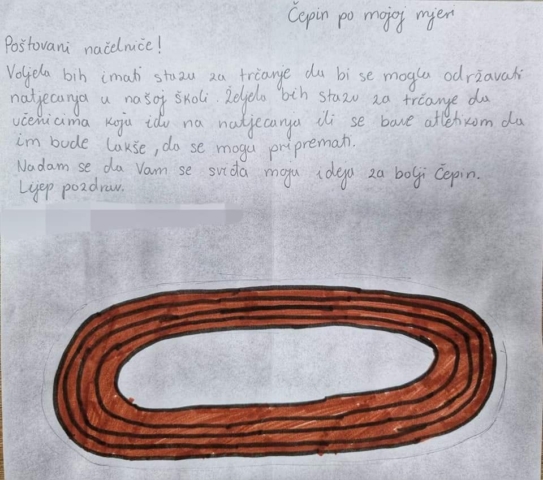 Čepin po mojoj mjeri
Poštovani načelniče!
Voljela bih imati stazu za trčanje da bi se mogla održavati
natjecanja u našoj školi. Željela bih stazu za trčanje da
učenicima koja idu na natjecanja ili se bave atletikom da
im bude lakše, da se mogu pripremati.
Nadam se da Vam se sviđa moja ideja za bolji Čepin.
Lijep pozdrav.